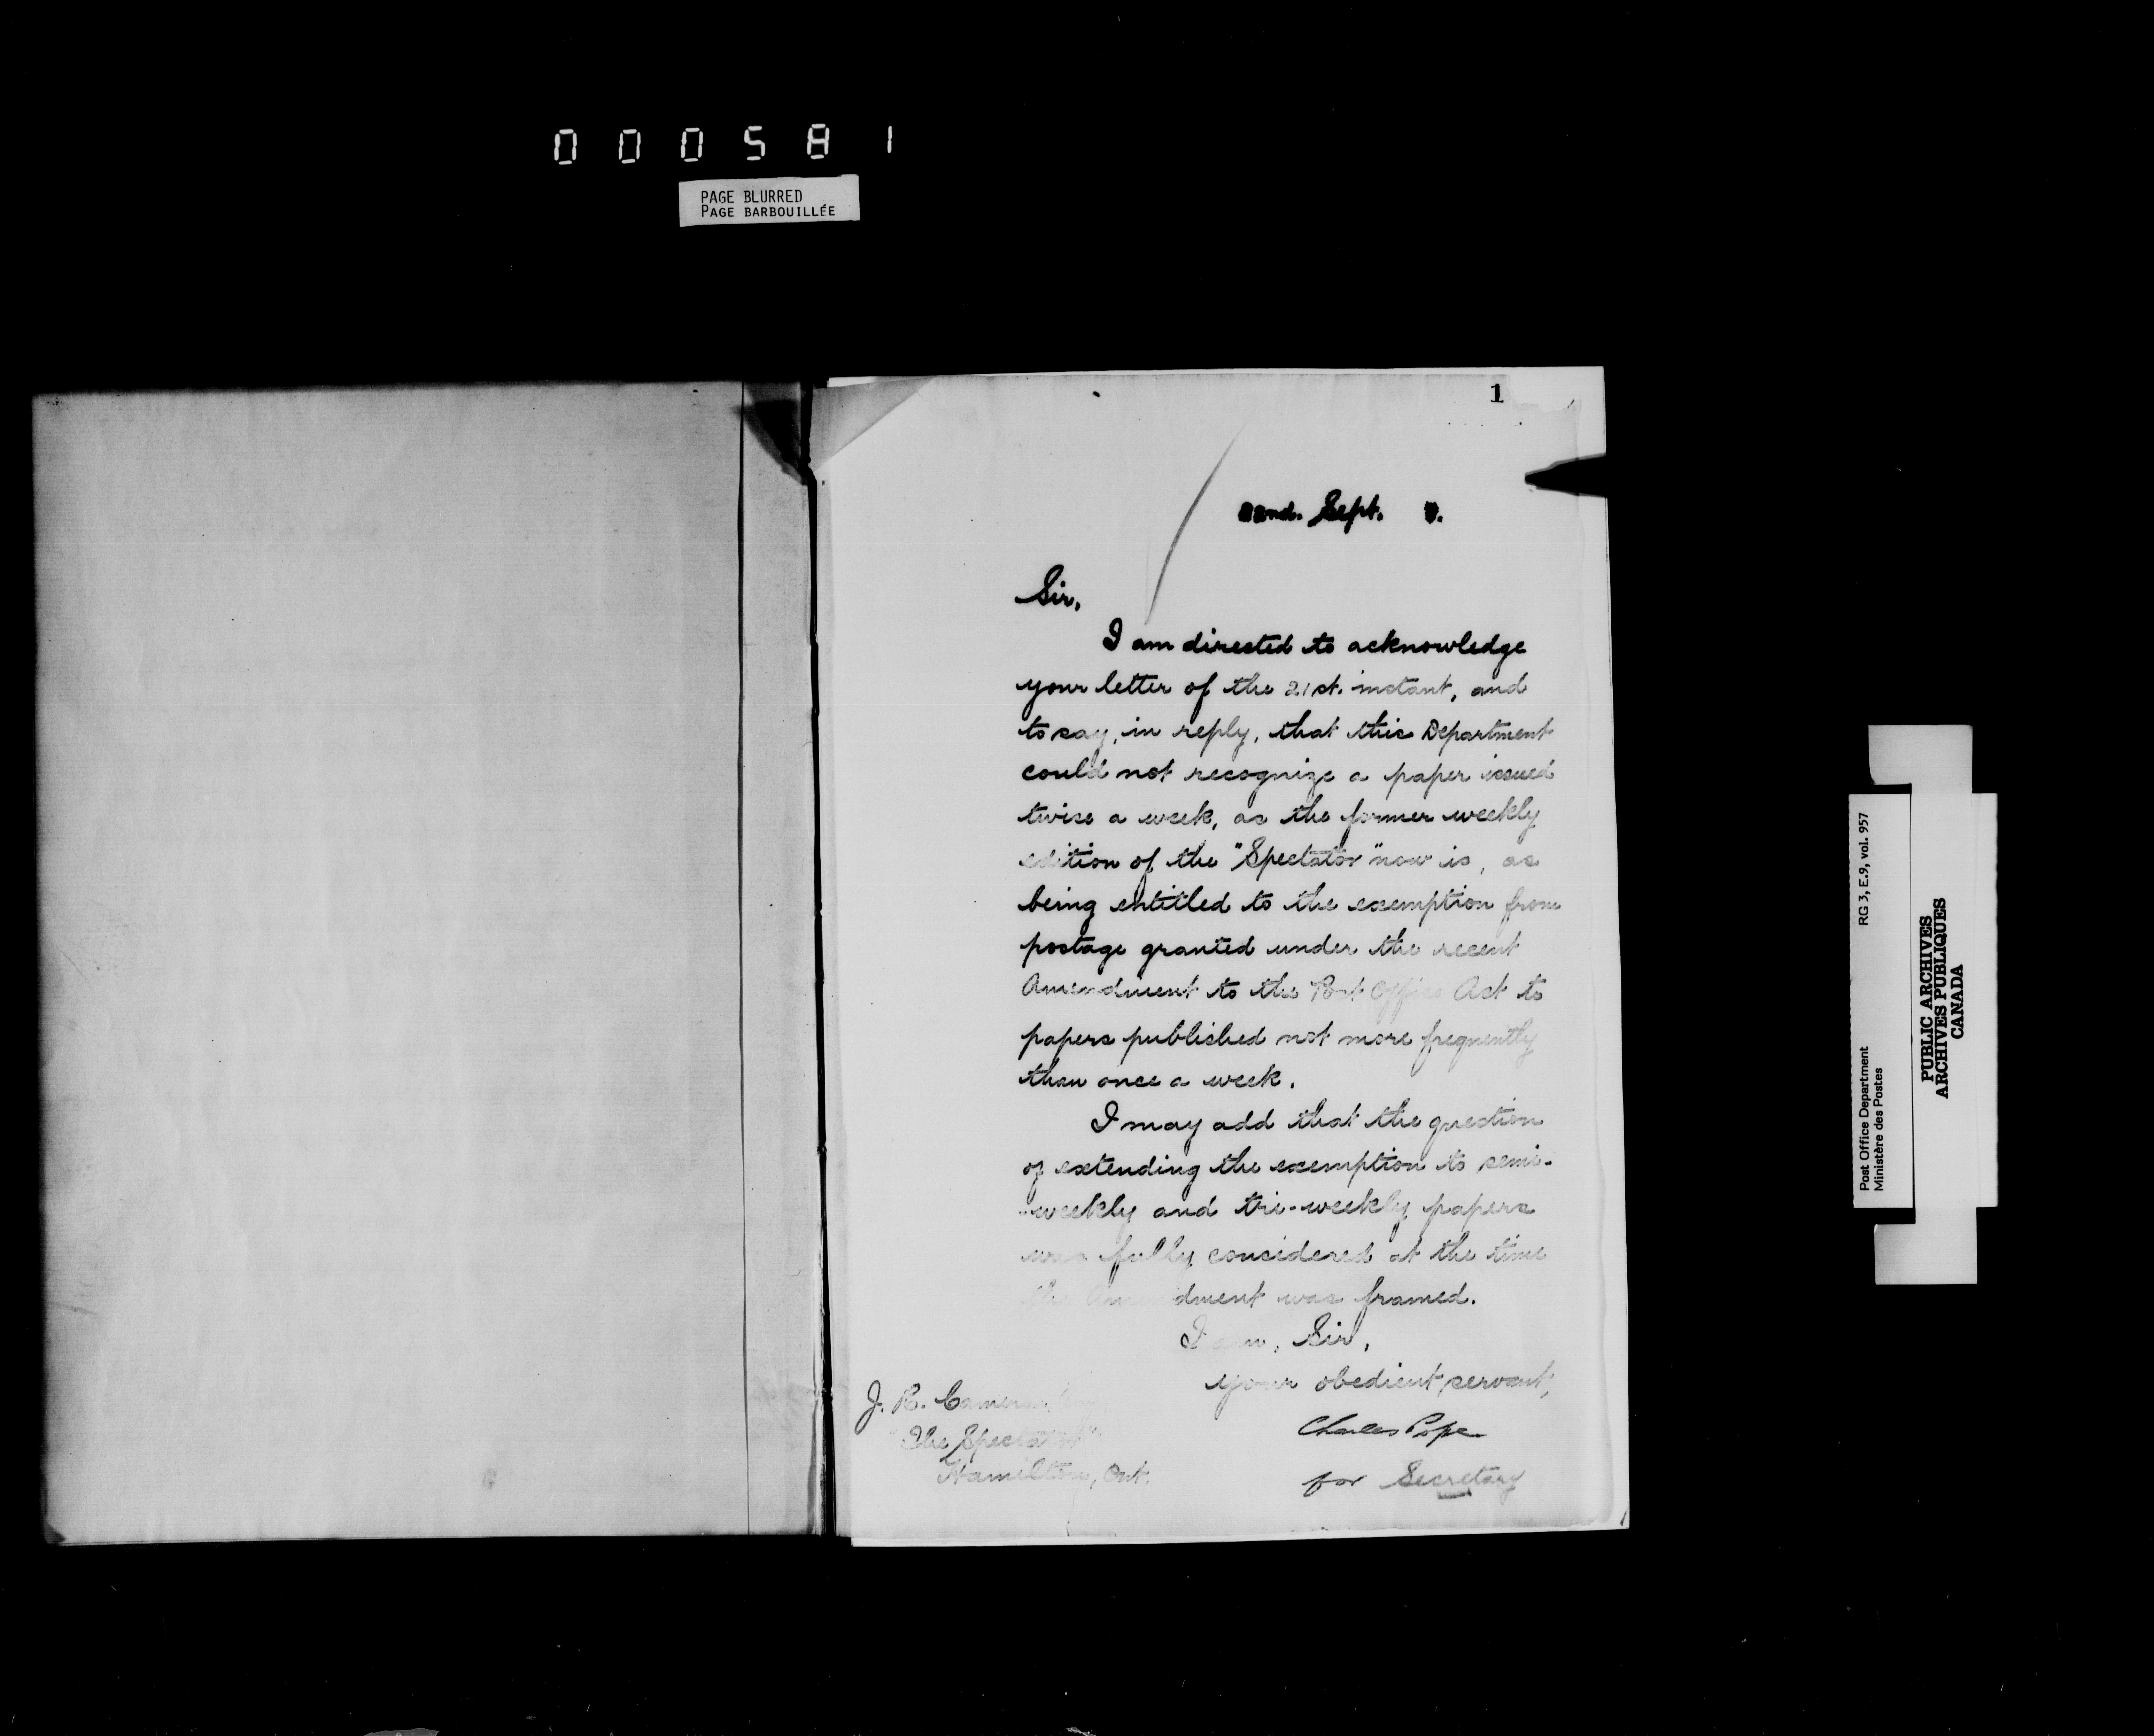 000581
PAGE BLURRED
PAGE BARBOUILLÉE
1
22nd. Sept.
Sir,
I am directed to acknowledge
your letter of the 21st. instant, and
to say, in reply, that this Department
could not recognize a paper issued
twice a week, as the former weekly
edition of the "Spectator" now is, as
being entitled to the exemption from
postage granted under the recent
Amendment to the Post Office Act to
papers published not more frequently
than once a week.
I may add that the question
of extending the exemption to semi-
-weekly and tri-weekly papers
was fully considered at the time
the Amendment was framed.
I am, Sir,
your obedient servant,
Charles Pope
for Secretary
J. R. Cameron
"The Spectator"
Hamilton, Ont.
Post Office Department
Ministère des Postes
RG 3, E.9, vol. 957
PUBLIC ARCHIVES
ARCHIVES PUBLIQUES
CANADA